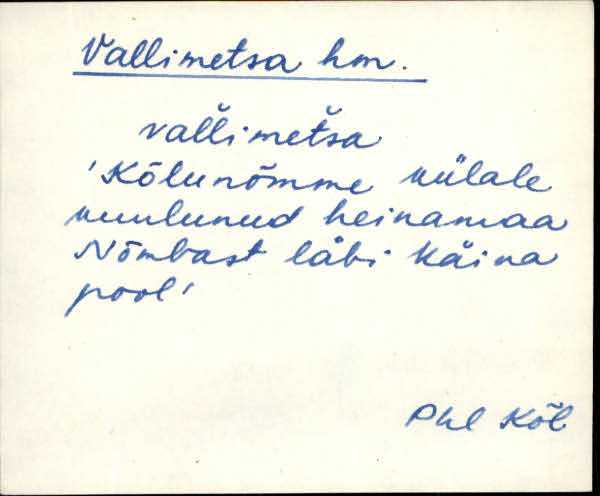 Vallimetsa hm.
val̆l̆imet̆sa
'Kõlunõmme külale
kuulunud heinamaa
Nõmbast läbi Käina
pool'
Phl Kõl